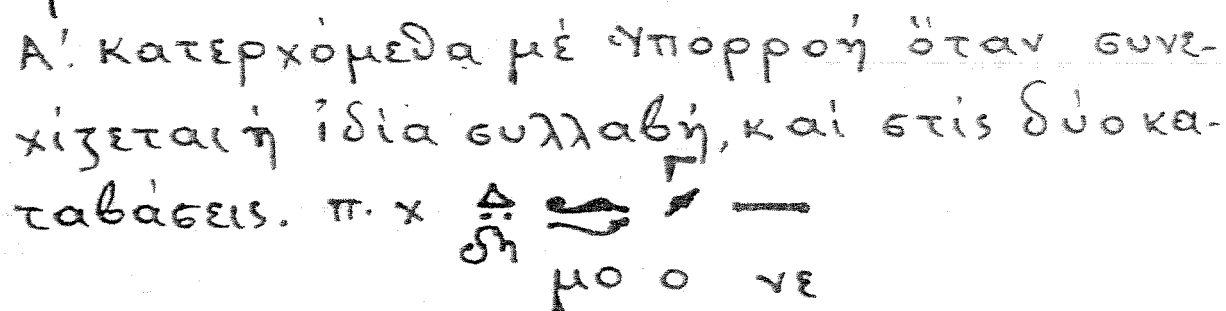 Α'. κατερχόμεθα μέ Υπορροή ὅταν συνε-
χίζεται ἡ ἰδία συλλαβή, καί στίς δύο κα-
ταβάσεις. π. χ Δ
δη
μο ο νε